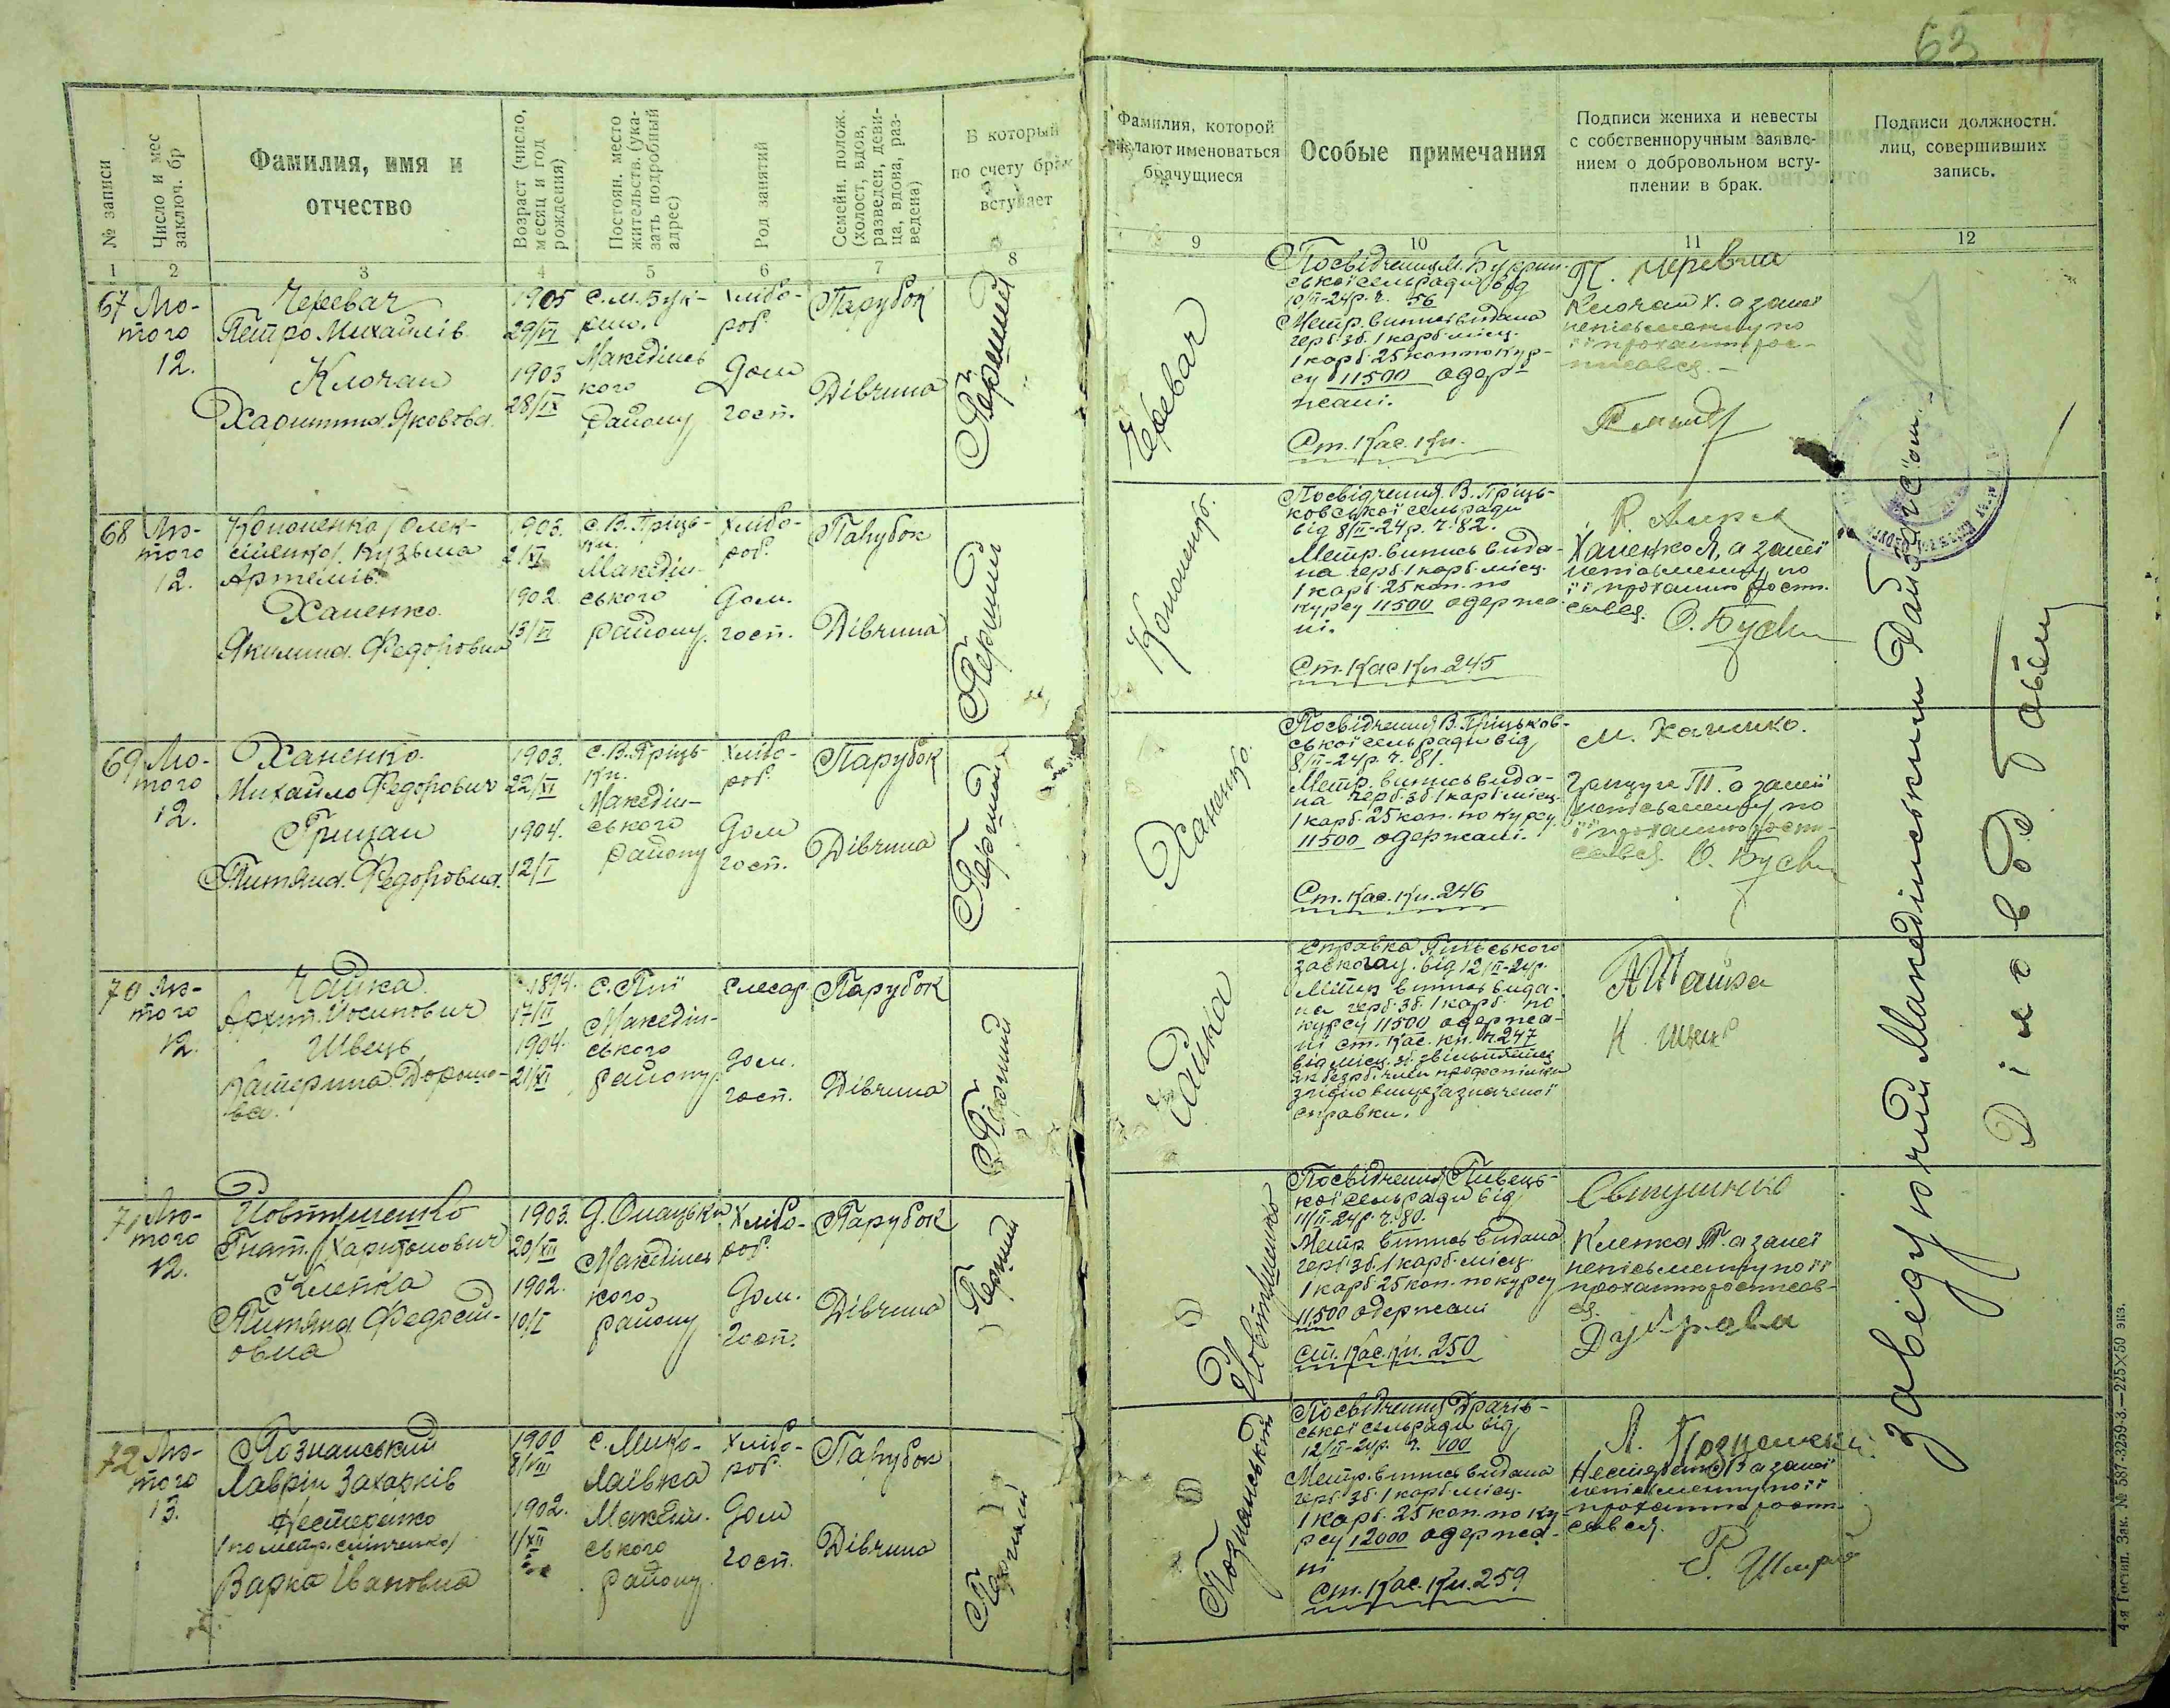 63
№ записи
Число и мес
заключ. бр
Фамилия, имя и
отчество
Возраст (число,
месяц и год
рождения)
Постоян. место
жительств. (ука-
зать подробный
адрес)
Род занятий
Семейн. полож.
(холост, вдов,
разведен, деви-
ца, вдова, раз-
ведена)
В который
по счету брак
вступает
1 2 3 4 5 6 7 8
67
Лю-
того
12.
Черевач
Петро Михайлів
Клочан
Харитина Яковова.
1905
29/VI
1903
28/IX
с. М. Бук-
рин.
Македінсь
кого
району
хлібо-
роб.
Дом
госп.
Парубок
Дівчина
Перший
68
Лю-
того
12.
Кононенко /Олек-
сієнко/ Кузьма
Артемів.
Ханенко
Якилина Федоровна
1903.
2/XI
1902.
13/VI
с. В. Пріць-
ки.
Македін-
ського
району.
хлібо-
роб.
Дом.
госп.
Парубок
Дівчина
Перший
69
Лю-
того
12.
Ханенко
Михайло Федорович
Грицан
Титяна Федоровна.
1903.
22/XI
1904.
12/I
с. В. Пріць-
ки.
Македін-
ського
району
хлібо-
роб
Дом
госп.
Парубок
Дівчина
Перший
70
Лю-
того
12.
Чайка
Архип Иосипович
Швець
Катерина Дороше-
ва.
1894.
17/II
1904.
21/XI
с. Пії
Македін-
ського
району.
слесар
дом.
госп.
Парубок
Дівчина
Перший
71
Лю-
того
12.
Йовтушенко
Гнат Харитонович
Клепка
Титяна Федосі-
овна
1903.
20/XII
1902.
10/I
Д. Онацьки
Македінсь
кого
району
Хлібо-
роб.
Дом.
Госп.
Парубок
Дівчина
Перший
72
Лю-
того
13.
Познанський
Лаврін Захарків
Нестеренко
Варка Івановна
1900
8/VIII
1902.
1/XII
с. Мико-
лаївка
Македін-
ського
району.
хлібо-
роб.
Дом
госп.
Парубок
Дівчина
Перший
Фамилия, которой
желают именоваться
брачущиеся
Особые примечания
Подписи жениха и невесты
с собственноручным заявле-
нием о добровольном всту-
плении в брак.
Подписи должностн.
лиц, совершивших
запись.
9 10 11 12
Черевач
Посвідчення М. Букрин-
ської сельради від
10/II-24р. ч. 56
Метр. випись видана
герб. зб. 1 карб. місц.
1 карб. 25 коп. по кур-
су 11500 одер-
жані.
Ст. Кас. Кн.
П. Черевач
Клочан Х. а за неї
неписьменну по
її проханню рос-
писався.
Кононенко.
Посвідчення В. Пріць-
ковської сельради
від 8/II-24р. ч. 82.
Метр. випись вида-
на герб. 1 карб. місц.
1 карб. 25 коп. по
курсу 11500 одержа-
ні.
Ст. Кас. Кн. 245
Ханенко Я, а за неї
неписьменну по
її проханню роспи-
сався.
Ханенко.
Посвідчення В. Пріцьков-
ської сельради від
8/II-24р. ч. 81.
Метр. випись вида-
на герб. зб. 1 карб. місц.
1 карб. 25 коп. по курсу
11500 одержані.
Ст. Кас. Кн. 246
М. Ханенко.
Т. а за неї
неписьменну по
її проханню роспи-
сався.
Чайка
Справка Пиївського
від 12/II-24р.
Метр випись вида-
на герб. зб. 1 карб. по
курсу 11500 одержа-
ні ст. Кас. кн. ч. 247
від місц. зб. звільняється
згідно вищезазначеної
справки.
А Чайка
К. Швець
Йовтушенко
Посвідчення Пивець-
кої сельради від
11/II-24р. ч. 80.
Метр випись видана
герб. зб. 1 карб. місц.
1 карб. 25 коп. по курсу
11500 одержані
ст. Кас. Кн. 250
Клепка Т. а за неї
неписьменну по її
проханню росписав-
ся.
Дубрава
Познанський
Посвідчення Драчів-
ської сельради від
12/II-24р. ч. 100
Метр. випись видана
герб. зб. 1 карб. місц.
1 карб. 25 коп. по ку-
рсу 12000 одержа-
ні
ст. Кас. Кн. 259
Л. Познанський
Нестеренко В а за неї
неписьменну по її
проханню роспи-
сався.
Завідуючий Македінським
Діловод
4-я Гостип. Зак. № 587-3259-3.—225×50 экз.